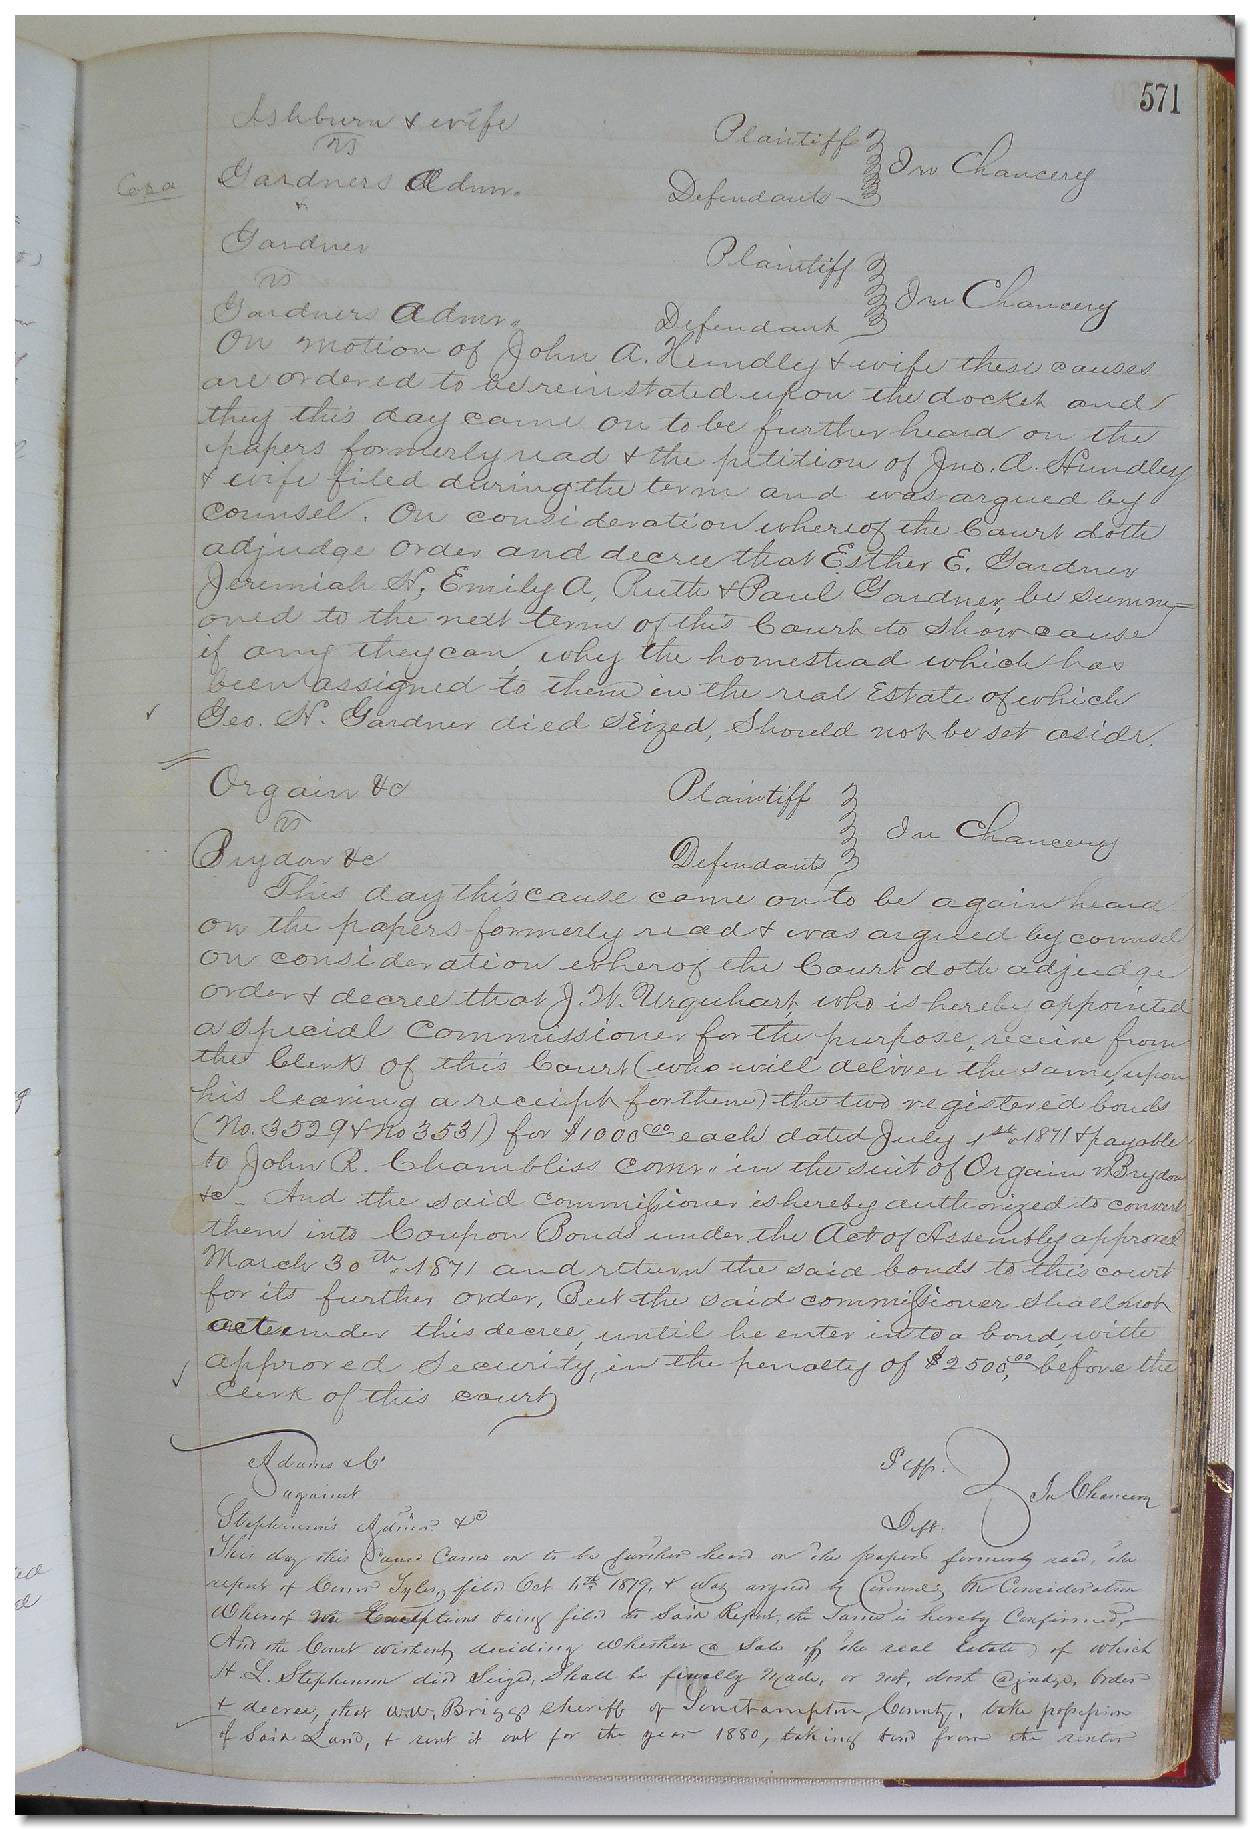 571
Ashburn & wife Plaintiff
vs In Chancery
Gardners Admr. Defendants
Gardner Plaintiff
vs In Chancery
Gardners Admr. Defendant
On motion of John A. Hundley & wife these causes
are ordered to be reinstated upon the docket and
they this day came on to be further heard on the
papers formerly read & the petition of Jno. A. Hundley
& wife filed during the term and was argued by
counsel. On consideration whereof the Court doth
adjudge order and decree that Esther E. Gardner
Jeremiah N, Emily A, Ruth & Paul Gardner, be summ-
oned to the next term of this Court to show cause
if any they can, why the homestead which has
been assigned to them in the real Estate of which
Geo. N. Gardner died seized, should not be set aside.
Orgain &c Plaintiff
vs In Chancery
Brydon &c Defendants
This day this cause came on to be again heard
on the papers formerly read & was argued by counsel
on consideration wherof the Court doth adjudge
order & decree that J. W. Urquhart, who is hereby appointed
a special commissioner for the purpose, recive from
the Clerk of this Court (who will deliver the same, upon
his leaving a receipt for them) the two registered bonds
(No. 3529 & No 3531) for $1000.00 each dated July 1st 1871 & payable
to John R. Chambliss comr. in the suit of Orgain vs Brydon
&c - And the said commissioner is hereby authorized to convert
them into Coupon Bonds under the Act of Assembly approved
March 30th 1871 and return the said bonds to this court
for its further order, But the said commissioner shall not
act under this decree, until he enter into a bond, with
approved security, in the penalty of $2500,00 before the
Clerk of this court
Adams & C Plff.
against In Chancery
Stephenson's Admr &c Deft.
This day this Cause Came on to be further heard on the papers formerly read, the
report of Comr Tyler, filed Oct 11th 1879, & was argued by Counsel, On Consideration
Whereof no Exceptions being filed to Said Report, the Same is hereby Confirmed,
And the Court without deciding Whether a Sale of the real Estate, of which
H. L. Stephenson died Seized, Shall be finally Made, or not, doth adjudge, Order
& decree, that W.W. Briggs Sheriff of Southampton County, take possession
of Said Land, & rent it out for the year 1880, taking bond from the renter